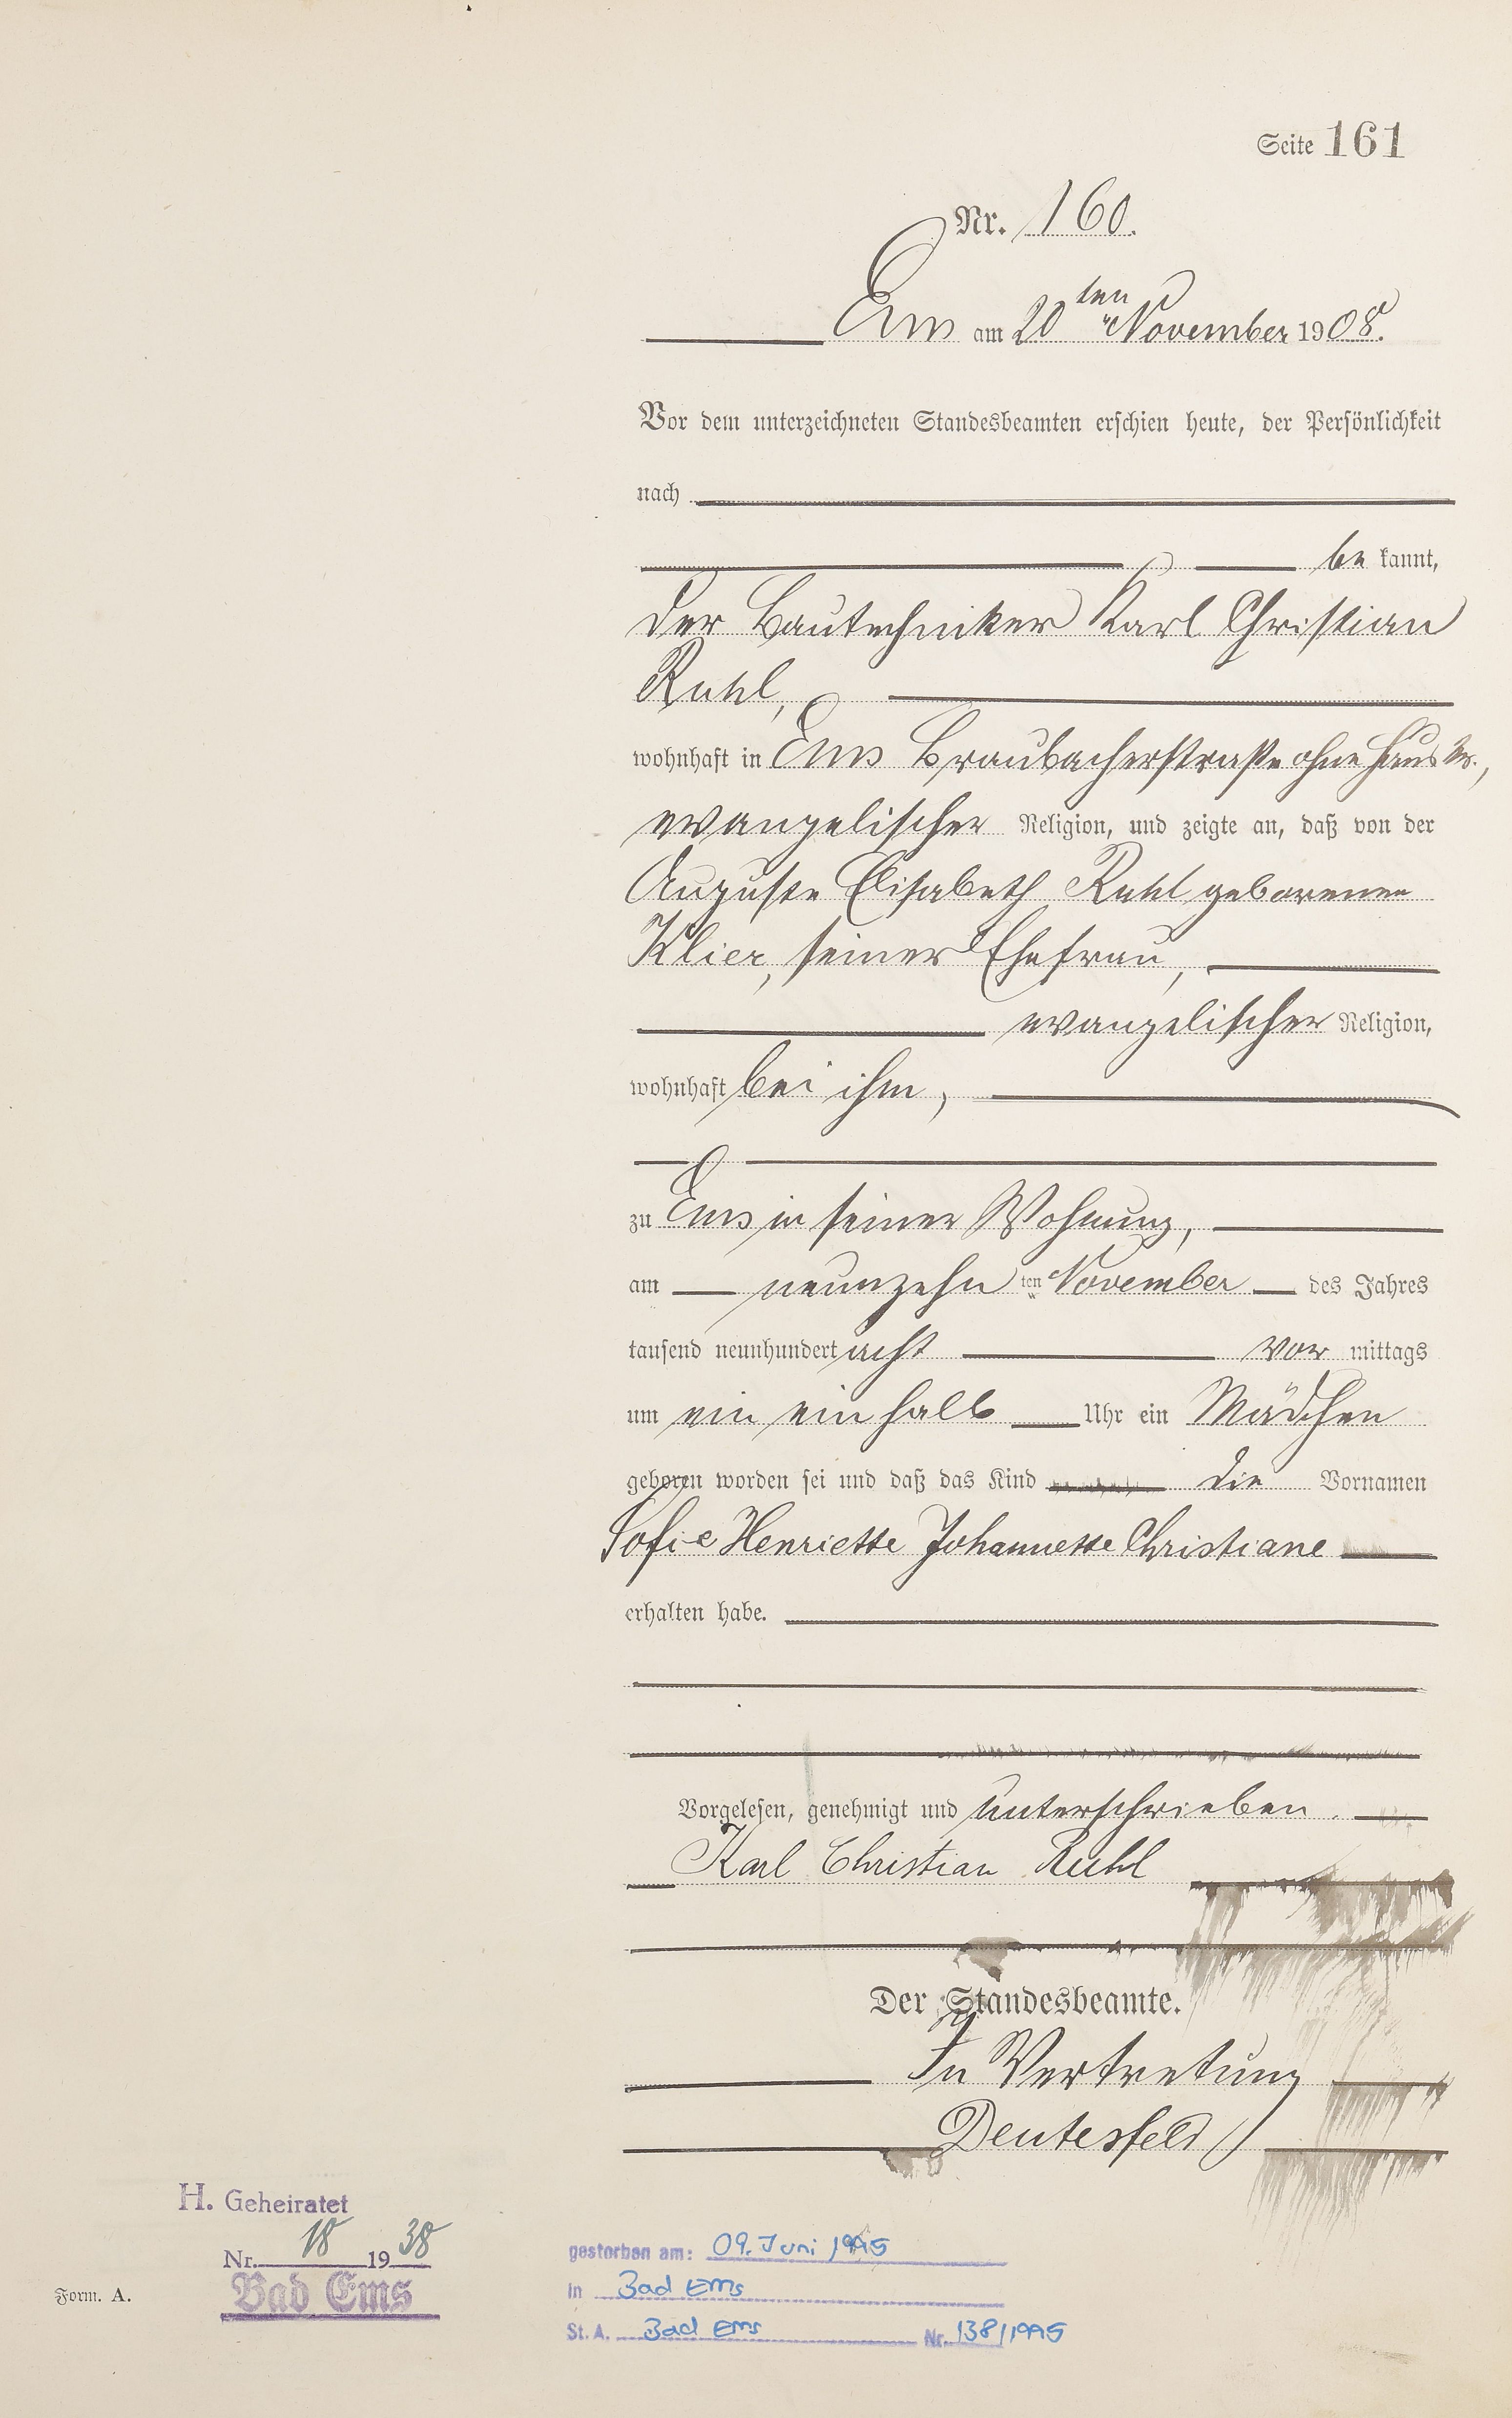 Seite 161
Nr. 160.
Ems am 20ten November 1908.
Vor dem unterzeichneten Standesbeamten erschien heute, der Persönlichkeit
nach
be kannt,
der Bautechniker Karl Christian
Ruhl,
wohnhaft in Ems Braubacherstraße ohne Haus Nr.,
evangelischer Religion, und zeigte an, daß von der
Auguste Elisabeth Ruhl geborenen
Klier, seiner Ehefrau,
evangelischer Religion,
wohnhaft bei ihm,
zu Ems in seiner Wohnung,
am neunzehn ten November des Jahres
tausend neunhundert acht vor mittags
um ein ein halb Uhr ein Mädchen
geboren worden sei und daß das Kind die Vornamen
Sofie Henriette Johannette Christiane
erhalten habe.
Vorgelesen, genehmigt und unterschrieben.
Karl Christian Ruhl
Der Standesbeamte.
In Vertretung
Deutesfeld
H. Geheiratet
Nr. 18 1938
Bad Ems
Form. A.
gestorben am: 09. Juni 1995
in Bad Ems
St. A. Bad Ems Nr. 138/1995